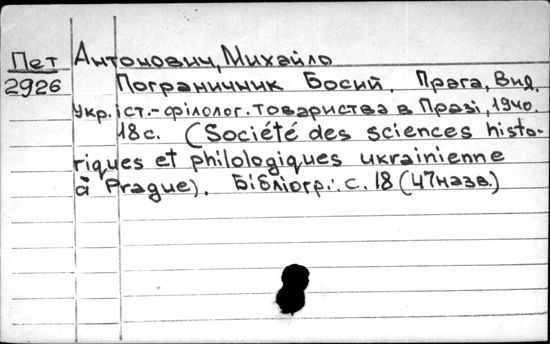 Пет Антонович, Михайло
2926 Пограничник Босий. Прага, Вид.
Укр. іст.-філолог. товариства в Празі, 1940.
18 с. (Société des sciences histo-
riques et philologiques ukrainienne
à Prague). Бібліогр.: с. 18 (47 назв.)